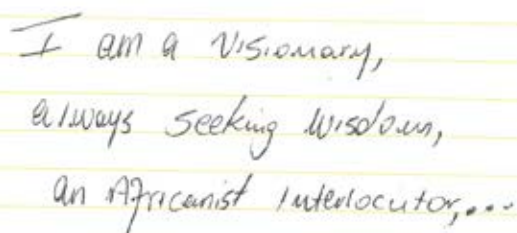 I am a visionary,
always seeking wisdom,
an Africanist interlocutor,...